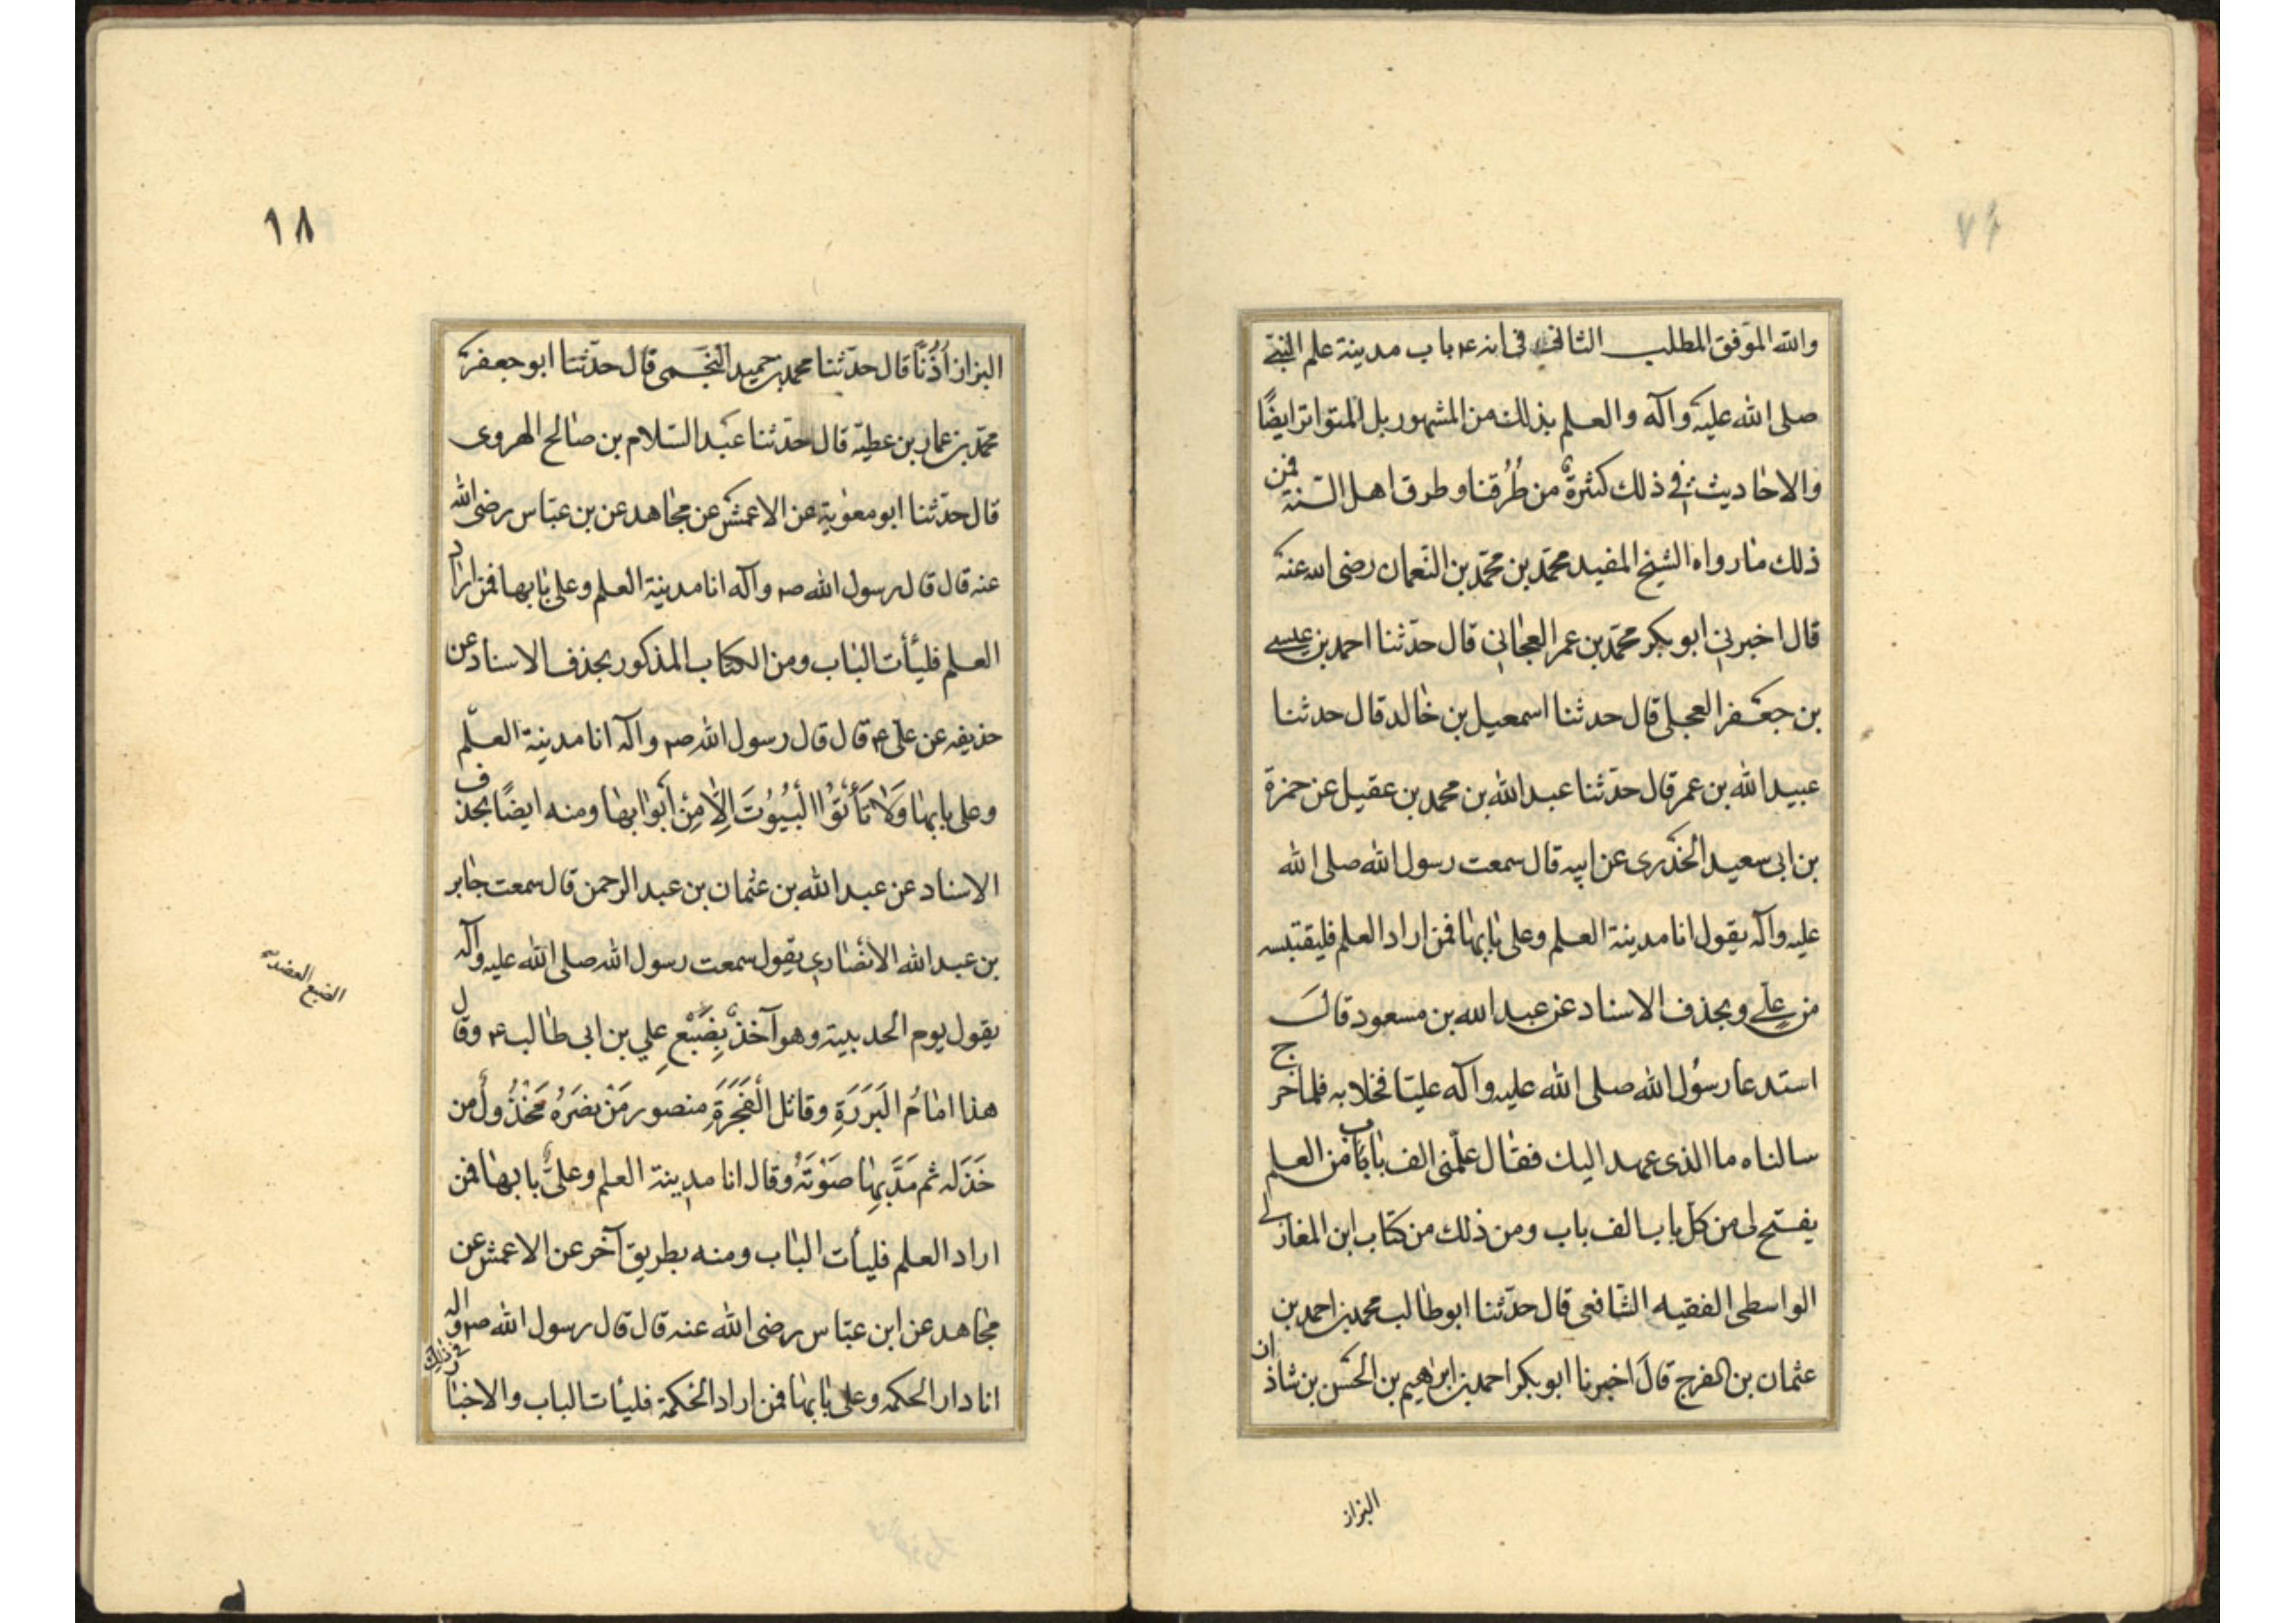 والله الموفق المطلب الثاني في انه ع باب مدينة علم النبي
صلى الله عليه وآله والعلم بذلك من المشهور بل المتواتر ايضًا
والاحاديث في ذلك كثيرة من طُرُقنا وطرق اهل السنة فمن
ذلك ما رواه الشيخ المفيد محمّد بن محمّد بن النّعمان رضى الله عنه
قال اخبرني ابو بكر محمّد بن عمر الجعابي قال حدّثنا احمد بن عيسى
بن جعفر العجلي قال حدثنا اسمعيل بن خالد قال حدثنا
عبيد الله بن عمر قال حدّثنا عبد الله بن محمد بن عقيل عن حمزة
بن ابى سعيد الخدرى عن ابيه قال سمعت رسول الله صلى الله
عليه وآله يقول انا مدينة العلم وعلى بابها فمن اراد العلم فليقتبسه
من علي وبحذف الاسناد عن عبد الله بن مسعود قال
استدعا رسول الله صلى الله عليه وآله عليّا فخلا به فلما خرج
سالناه ما الذى عهد اليك فقال علّمنى الف باب من العلم
يفتح لى من كل باب الف باب ومن ذلك من كتاب ابن المغازلي
الواسطى الفقيه الشافعى قال حدّثنا ابو طالب محمد بن احمد بن
عثمان بن الفرج قال اخبرنا ابو بكر احمد بن ابرهيم بن الحسن بن شاذان
البزاز
١٨
البزاز اُذُنًا قال حدّثنا محمد بن حميد اللخمى قال حدّثنا ابو جعفر
محمّد بن عمار بن عطيّه قال حدّثنا عبد السّلام بن صالح الهروى
قال حدّثنا ابو معوية عن الاعمش عن مجاهد عن بن عبّاس رضى الله
عنه قال قال رسول الله ص وآله انا مدينة العلم وعلى بابها فمن اراد
العلم فليأت الباب ومن الكتاب المذكور بحذف الاسناد عن
حذيفه عن على ع قال قال رسول الله ص وآله انا مدينة العلم
وعلى بابها وَلا تَأتُوا البُيُوتَ اِلّا مِنْ اَبْوابها ومنه ايضًا بحذف
الاسناد عن عبد الله بن عثمان بن عبد الرحمن قال سمعت جابر
بن عبد الله الأنصارى يقول سمعت رسول الله صلى الله عليه وآله
يقول يوم الحديبيه وهو آخذٌ بِضَبْعِ علي بن ابى طالب ع وقال
هذا امامُ البَرَرَةِ وقاتل الفَجَرَةِ منصور مَنْ نصَرَهُ مَخْذُولٌ من
خَذَله ثم مَدَّ بها صَوْتَهُ وقال انا مدينة العلم وعلىٌّ بابها فمن
اراد العلم فليأت الباب ومنه بطريق آخر عن الاعمش عن
مجاهد عن ابن عبّاس رضى الله عنه قال قال رسول الله ص وآله
انا دار الحكمه وعلى بابها فمن اراد الحكمة فليأت الباب والاخبار في ذلك
الضبع العضد